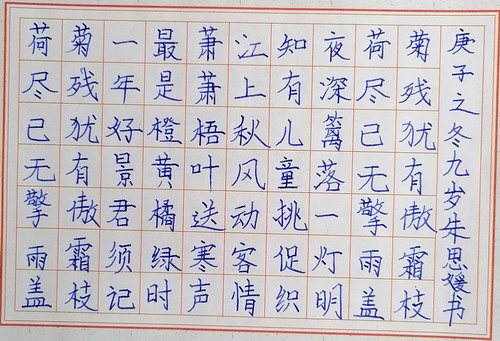 荷尽已无擎雨盖
菊残犹有傲霜枝
一年好景君须记
最是橙黄橘绿时
萧萧梧叶送寒声
江上秋风动客情
知有儿童挑促织
夜深篱落一灯明
荷尽已无擎雨盖
菊残犹有傲霜枝
庚子之冬九岁朱思媛书